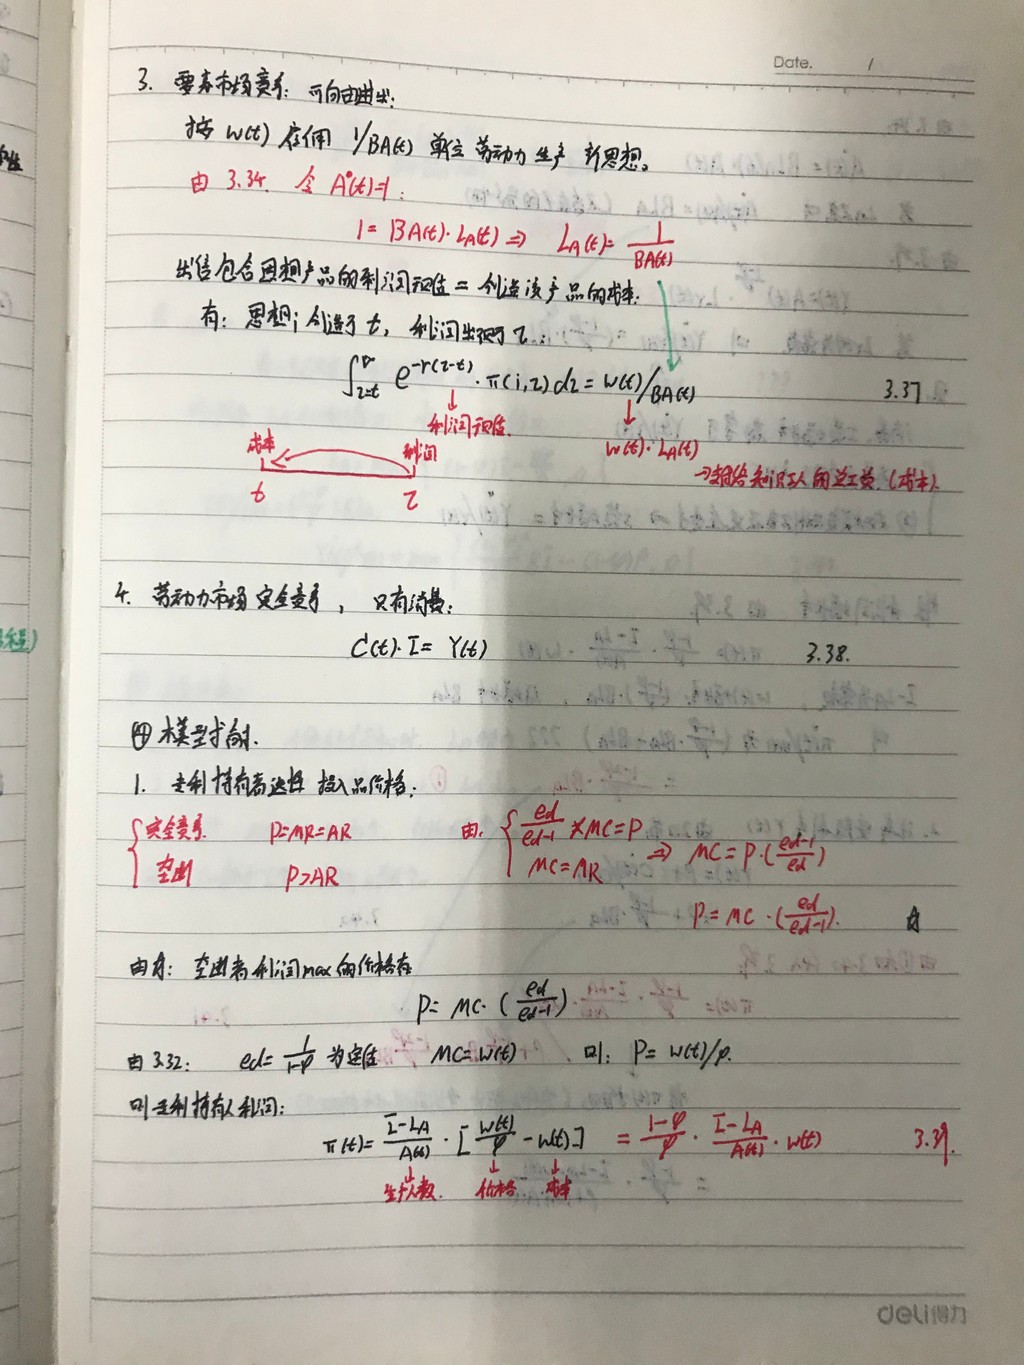 Date. /
3. 要素市场竞争: 可自由进出:
按 W(t) 雇佣 1/BA(t) 单位劳动力生产新思想。
由 3.34. 令 A°(t)=1:
1 = BA(t)·L_A(t) ⇒ L_A(t) = 1/BA(t)
出售包含思想产品的利润现值 = 创造该产品的成本.
有: 思想 i 创造于 t, 利润出现于 τ:
∫_{τ=t}^{∞} e^{-r(τ-t)}·π(i,τ)dτ = W(t)/BA(t) 3.37
↓ 利润现值. ↓ W(t)·L_A(t)
成本 利润
→支付给知识工人的总工资.(成本).
t τ
4. 劳动力市场完全竞争, 只有消费:
C(t)·L̄ = Y(t) 3.38.
④ 模型求解.
1. 专利持有者选择投入品价格:
完全竞争 P=MR=AR 由: { ed/(ed-1) × MC = P
垄断 P>AR MC=AR ⇒ MC = P·(ed-1/ed)
P = MC·(ed/ed-1). ☆
由☆: 垄断者利润max的价格存
P = MC·(ed/ed-1)
由 3.32: ed = 1/1-φ 为定值 MC=W(t) 则: P = W(t)/φ.
则专利持有人利润:
π(t) = (L̄-L_A)/A(t)·[W(t)/φ - W(t)] = (1-φ)/φ·(L̄-L_A)/A(t)·W(t) 3.39.
生产人数. 价格 成本
deli得力